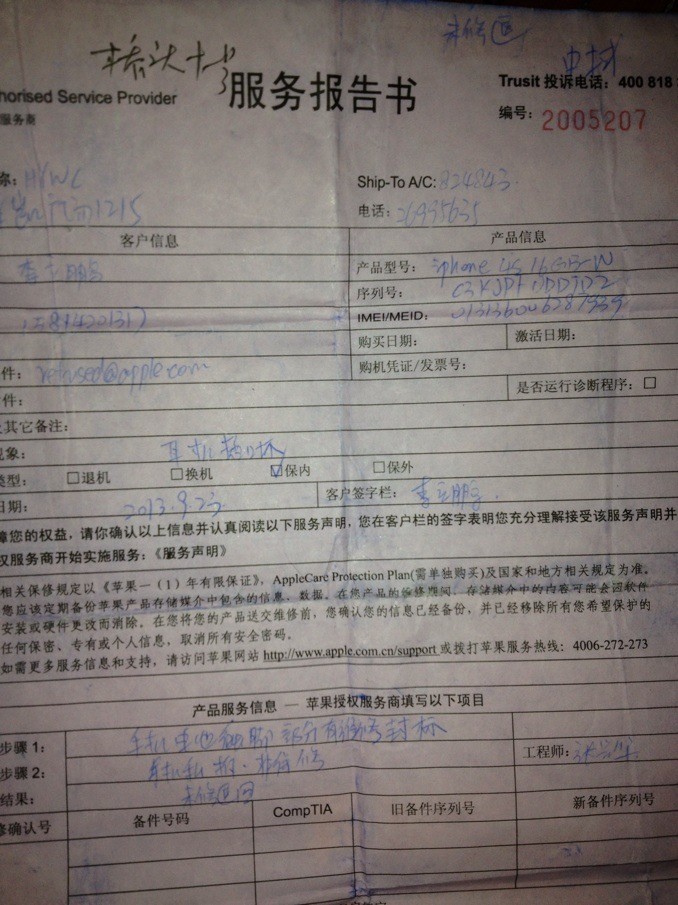 未修退
horised Service Provider
服务商
服务报告书
Trusit 投诉电话：400 818
编号：2005207
Ship-To A/C: 824843
1215
电话：26955635
客户信息
产品信息
产品型号：iphone 4s 16GB-W
序列号：
IMEI/MEID：013136006287939
购买日期：
激活日期：
件：refused@apple.com
购机凭证/发票号：
件：
是否运行诊断程序：□
其它备注：
现象：耳机
类型：
□退机
□换机
☑保内
□保外
日期：2013.9.23
客户签字栏：李
障您的权益，请你确认以上信息并认真阅读以下服务声明，您在客户栏的签字表明您充分理解接受该服务声明并
权服务商开始实施服务：《服务声明》
相关保修规定以《苹果一（1）年有限保证》，AppleCare Protection Plan(需单独购买)及国家和地方相关规定为准。
您应该定期备份苹果产品存储媒介中包含的信息、数据。在您产品的维修期间，存储媒介中的内容可能会因软件
安装或硬件更改而消除。在您将您的产品送交维修前，您确认您的信息已备份，并已经移除所有您希望保护的
任何保密、专有或个人信息，取消所有安全密码。
如需更多服务信息和支持，请访问苹果网站 http://www.apple.com.cn/support 或拨打苹果服务热线：4006-272-273
产品服务信息 — 苹果授权服务商填写以下项目
步骤 1：手机电池
步骤 2：手机私拆
工程师：
结果：未修退回
修确认号
备件号码
CompTIA
旧备件序列号
新备件序列号